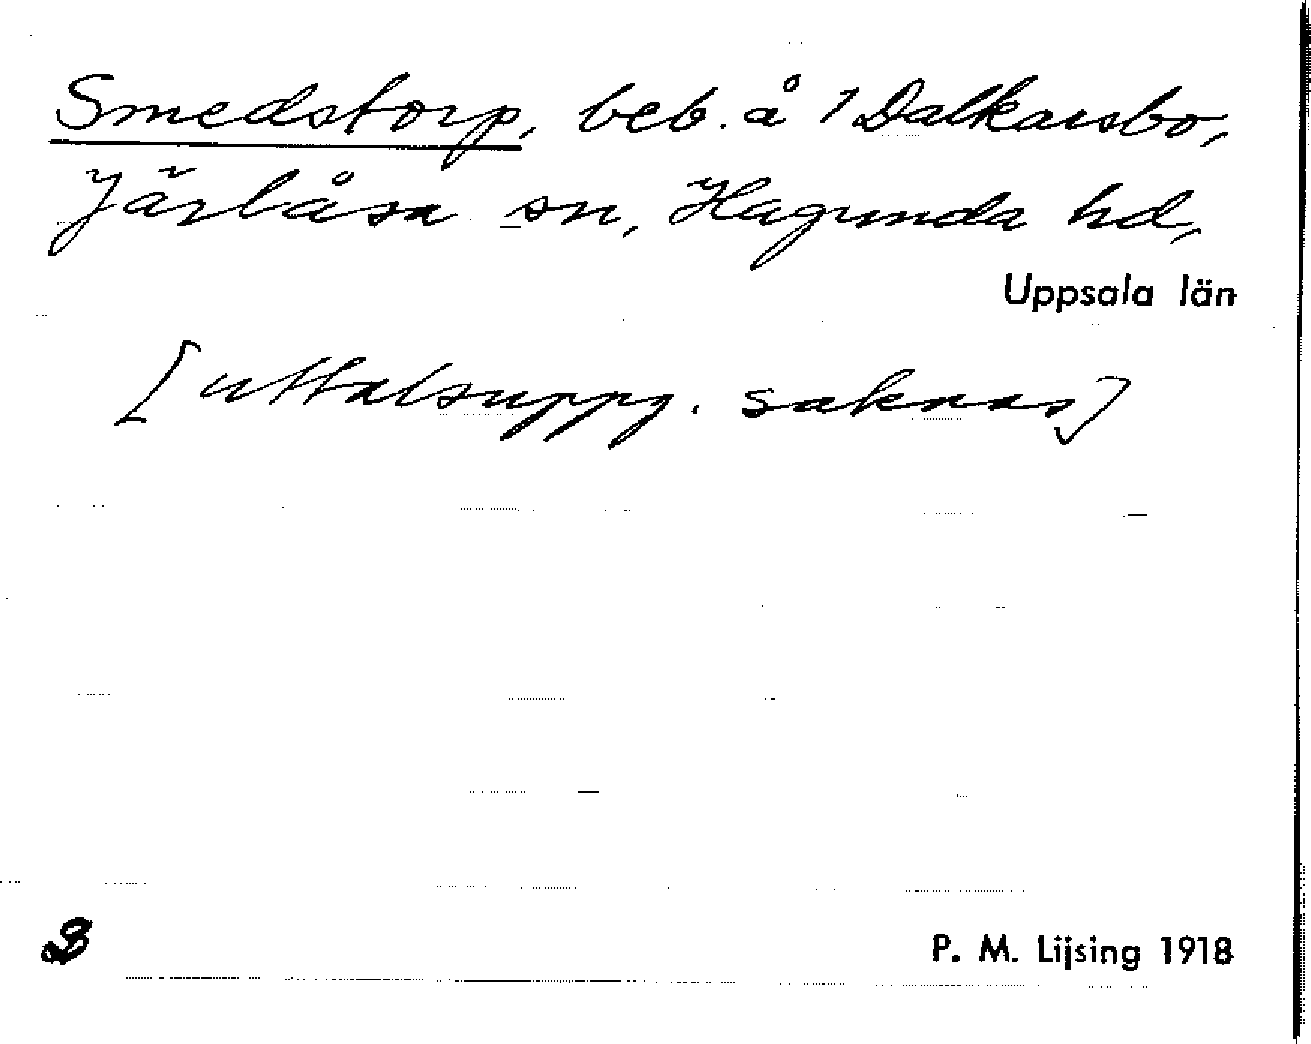 Smedstorp, beb. å 1 Dalkarsbo,
Järlåsa sn, Hagunda hd,
Uppsala län
[uttalsuppg. saknas]
3
P. M. Lijsing 1918